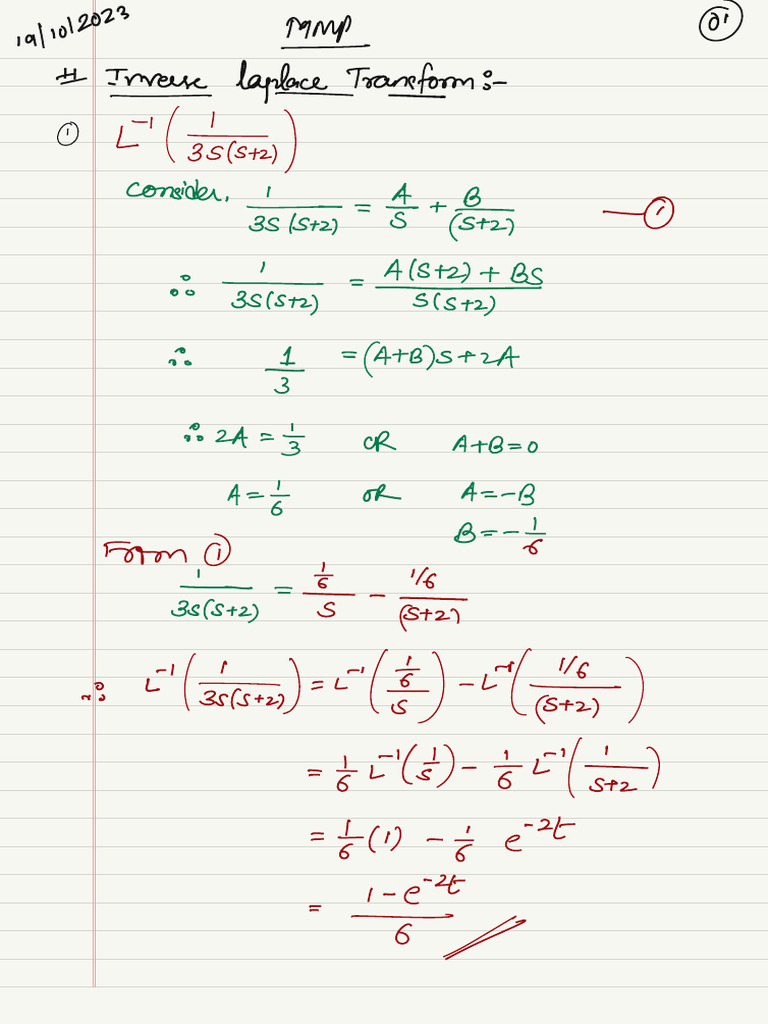 19/10/2023
MMP
01
# Inverse Laplace Transform:-
① L⁻¹(1/(3S(S+2)))
Consider, 1/(3S(S+2)) = A/S + B/(S+2) —①
∴ 1/(3S(S+2)) = (A(S+2) + BS)/(S(S+2))
∴ 1/3 = (A+B)S + 2A
∴ 2A = 1/3 OR A+B=0
A = 1/6 OR A=-B
B = -1/6
From ①
1/(3S(S+2)) = (1/6)/S - (1/6)/(S+2)
∴ L⁻¹(1/(3S(S+2))) = L⁻¹((1/6)/S) - L⁻¹((1/6)/(S+2))
= 1/6 L⁻¹(1/S) - 1/6 L⁻¹(1/(S+2))
= 1/6 (1) - 1/6 e^(-2t)
= (1 - e^(-2t))/6